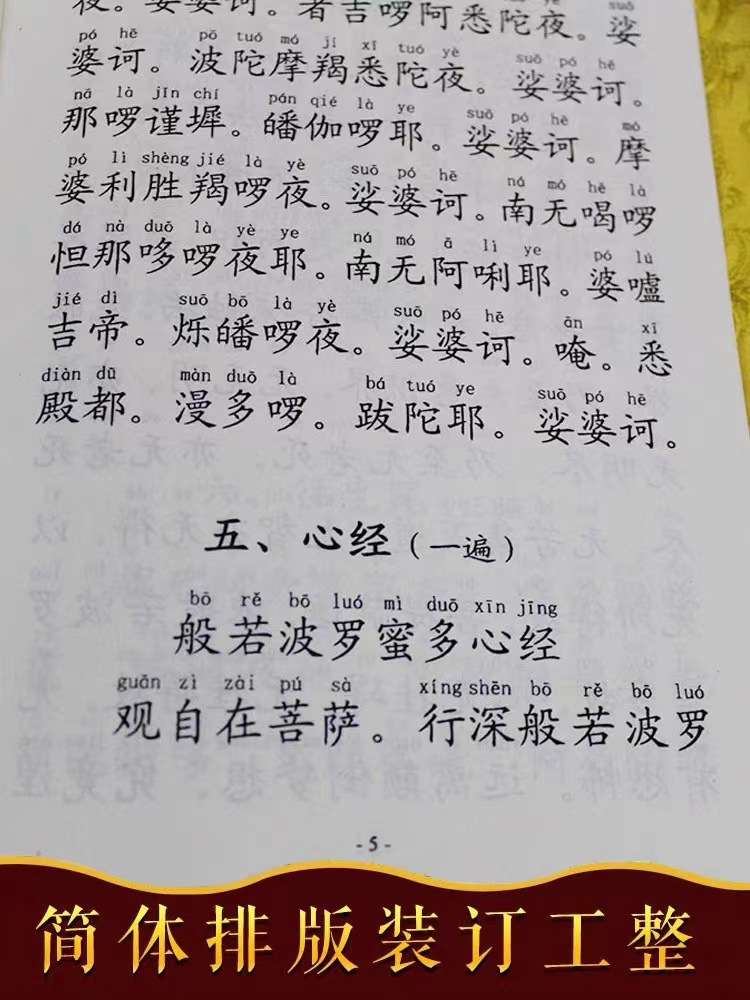 夜。娑婆诃。者吉啰阿悉陀夜。娑
suō
pó hē pō tuó mó jí xī tuó yè suō pó hē
婆诃。波陀摩羯悉陀夜。娑婆诃。
nā là jǐn chí pán qié là ye suō pó hē mó
那啰谨墀。皤伽啰耶。娑婆诃。摩
pó lì shèng jié là yè suō pó hē ná mó hē là
婆利胜羯啰夜。娑婆诃。南无喝啰
dá nà duō là yè ye ná mó ā lì ye pó lú
怛那哆啰夜耶。南无阿唎耶。婆嚧
jié dì suō bō là yè suō pó hē ān xī
吉帝。烁皤啰夜。娑婆诃。唵。悉
diàn dū màn duō là bá tuó ye suō pó hē
殿都。漫多啰。跋陀耶。娑婆诃。
五、心经（一遍）
bō rě bō luó mì duō xīn jīng
般若波罗蜜多心经
guān zì zài pú sà xíng shēn bō rě bō luó
观自在菩萨。行深般若波罗
- 5 -
简体排版装订工整